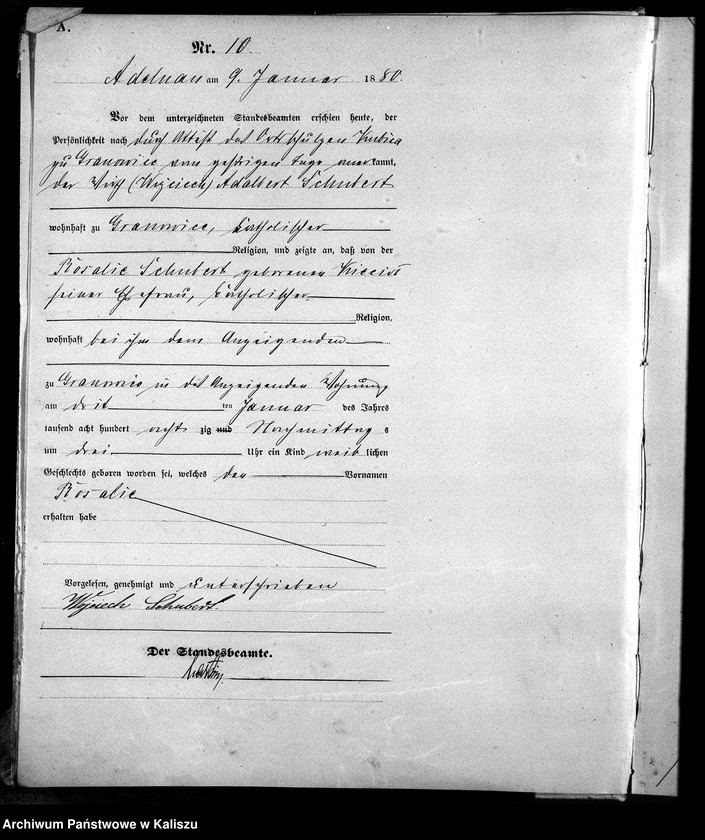 A.
Nr. 10.
Adelnau am 9. Januar 1880.
Vor dem unterzeichneten Standesbeamten erschien heute, der
Persönlichkeit nach durch Attest des Ortsschulzen
zu Granowiec vom gestrigen Tage anerkannt,
der Wirth (Wojciech) Adalbert Schubert
wohnhaft zu Granowiec, katholischer
Religion, und zeigte an, daß von der
Rosalie Schubert geborenen
seiner Ehefrau, katholischer
Religion,
wohnhaft bei ihm dem Anzeigenden
zu Granowiec in des Anzeigenden Wohnung,
am dritten Januar des Jahres
tausend acht hundert achtzig und Nachmittags
um drei Uhr ein Kind weiblichen
Geschlechts geboren worden sei, welches den Vornamen
Rosalie
erhalten habe
Vorgelesen, genehmigt und unterschrieben
Wojciech Schubert.
Der Standesbeamte.
Archiwum Państwowe w Kaliszu